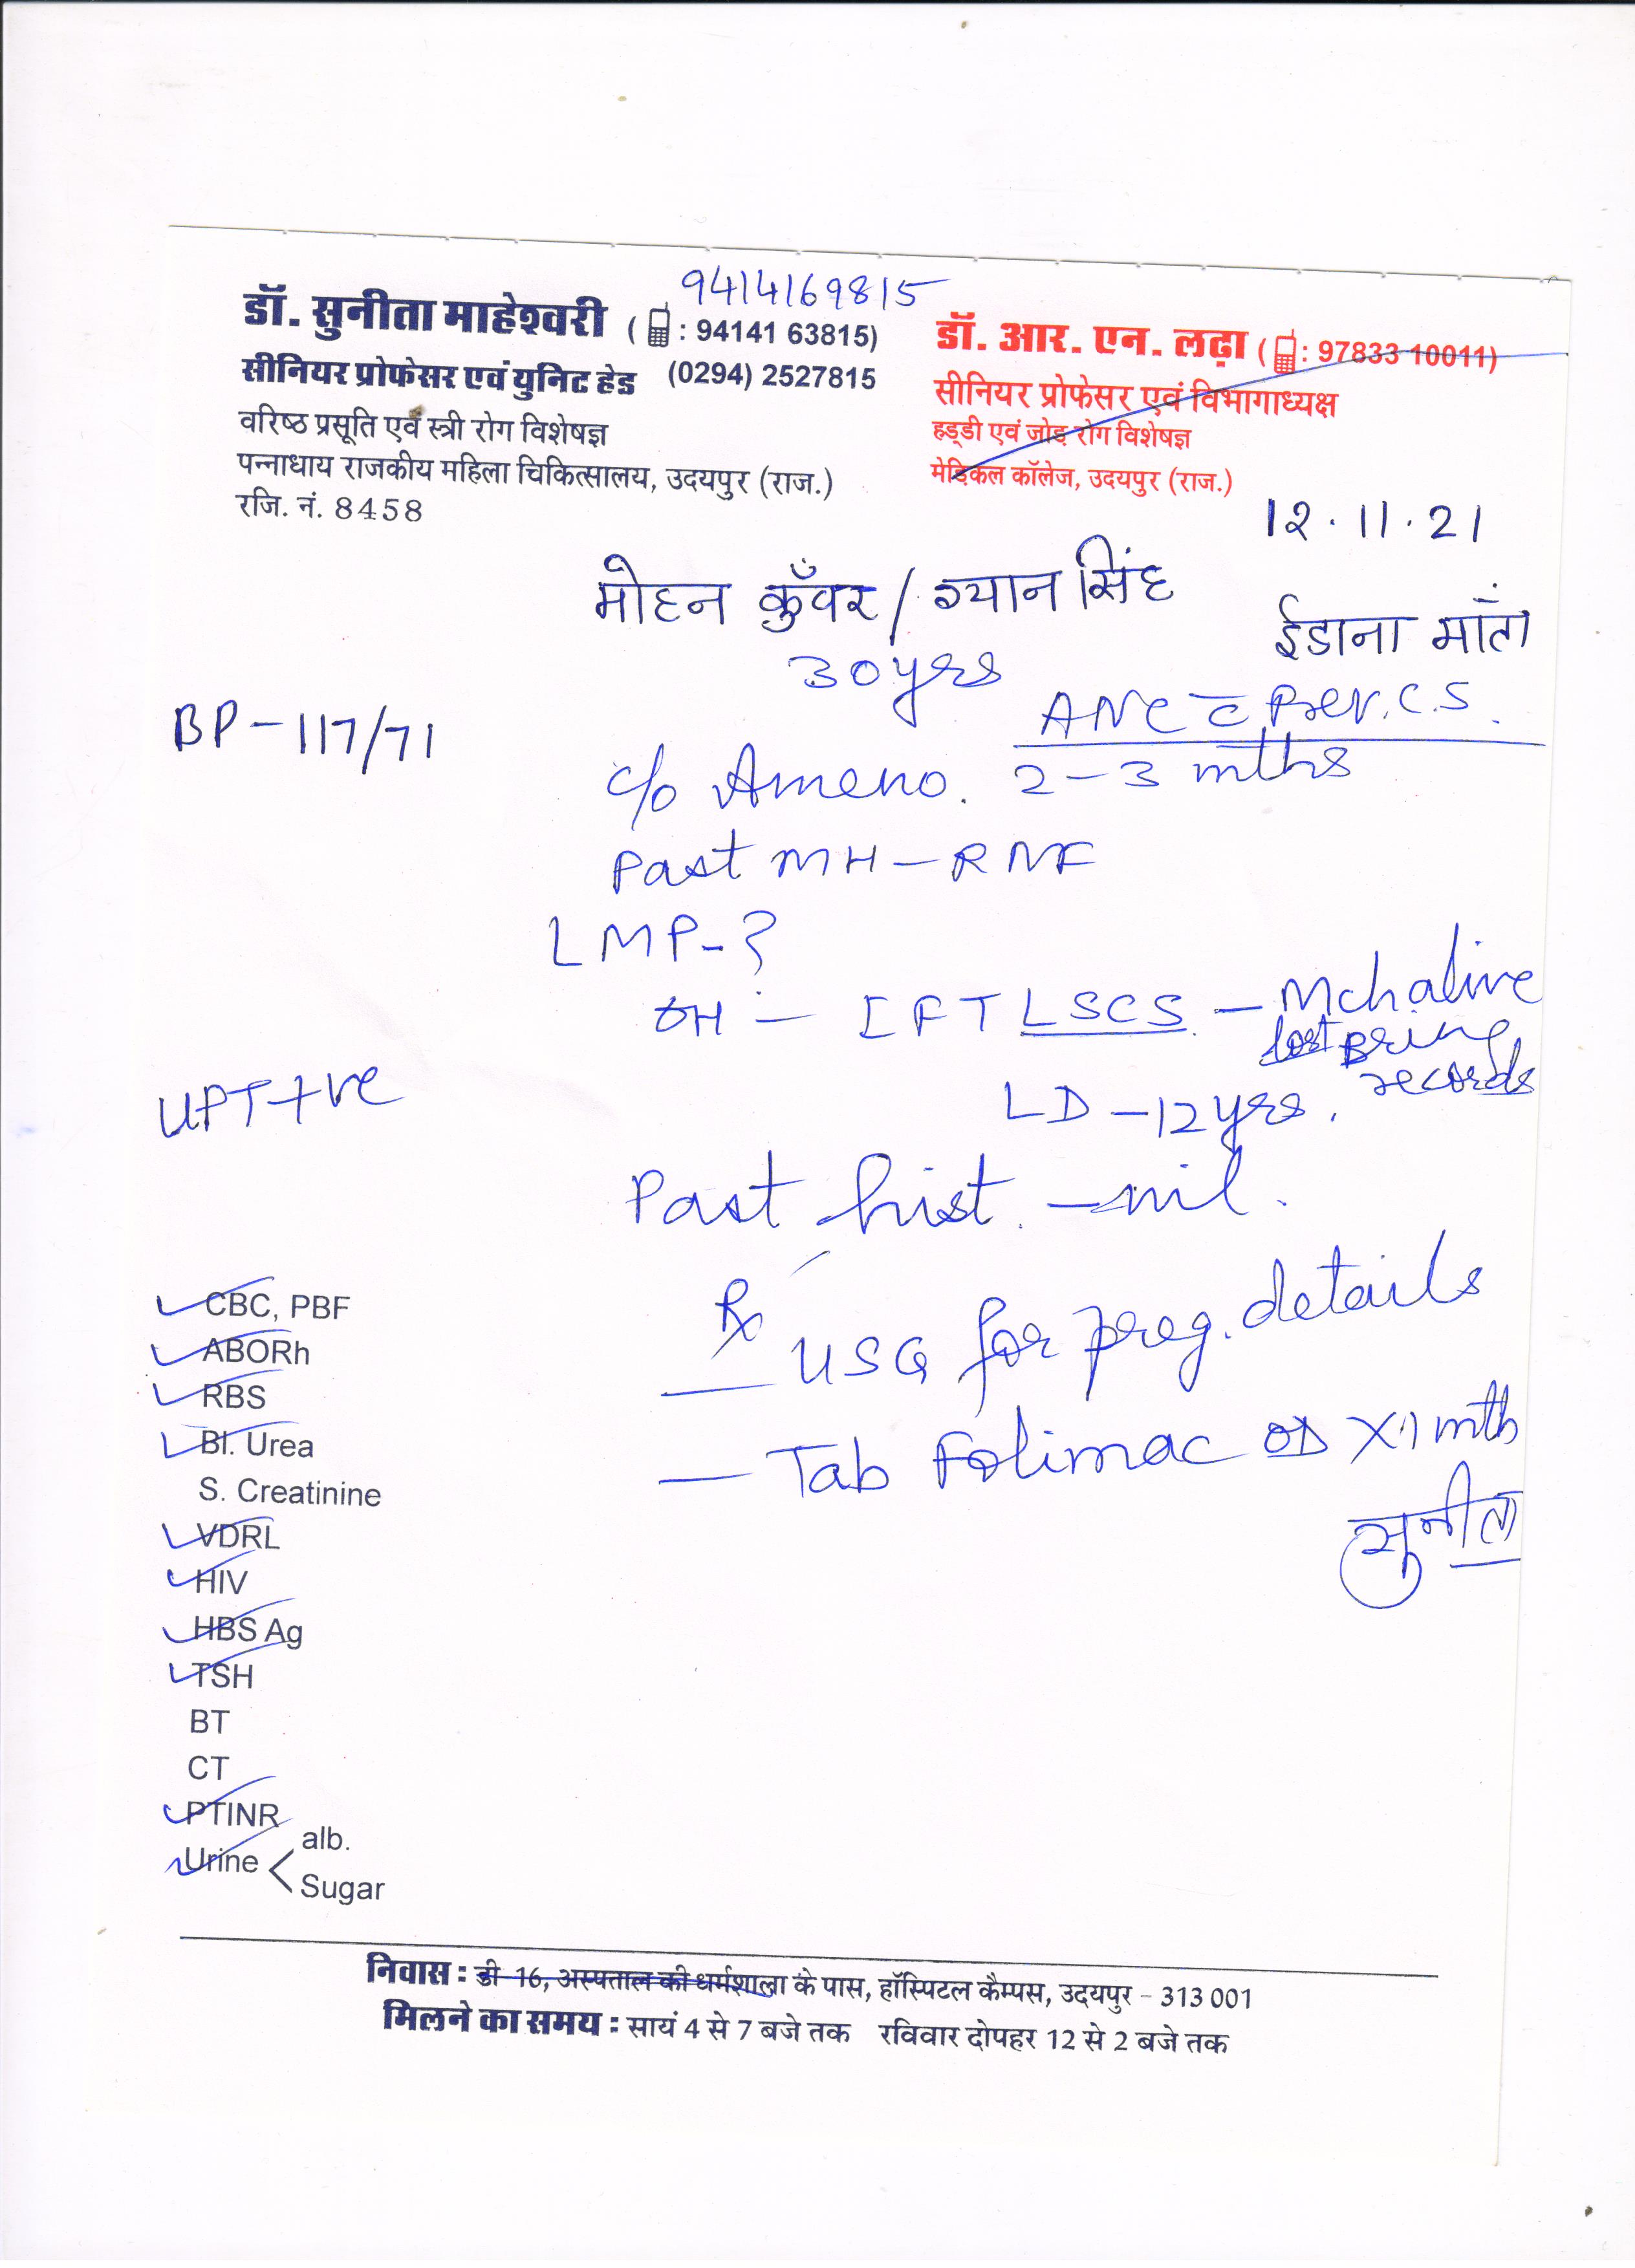 9414169815
डॉ. सुनीता माहेश्वरी ( : 94141 63815)
सीनियर प्रोफेसर एवं युनिट हेड (0294) 2527815
वरिष्ठ प्रसूति एवं स्त्री रोग विशेषज्ञ
पन्नाधाय राजकीय महिला चिकित्सालय, उदयपुर (राज.)
रजि. नं. 8458
डॉ. आर. एन. लढ़ा ( : 97833 10011)
सीनियर प्रोफेसर एवं विभागाध्यक्ष
हड्डी एवं जोड़ रोग विशेषज्ञ
मेडिकल कॉलेज, उदयपुर (राज.)
12.11.21
मोहन कुँवर / ग्यान सिंह
ईडाना माँता
30 yrs
ANC c̅ Prev. C.S.
BP - 117/71
c/o Ameno. 2-3 mths
Past MH - RNF
LMP - ?
OH - I FT LSCS. - Mch alive
lost Bring
records
LD - 12 yrs.
UPT +ve
Past hist. - nil.
Rx
USG for preg. details
- Tab Folimac OD X 1 mth
सुनीता
CBC, PBF
ABORh
RBS
Bl. Urea
S. Creatinine
VDRL
HIV
HBS Ag
TSH
BT
CT
PTINR
Urine < alb.
Sugar
निवास : डी 16, अस्पताल की धर्मशाला के पास, हॉस्पिटल कैम्पस, उदयपुर - 313 001
मिलने का समय : सायं 4 से 7 बजे तक रविवार दोपहर 12 से 2 बजे तक